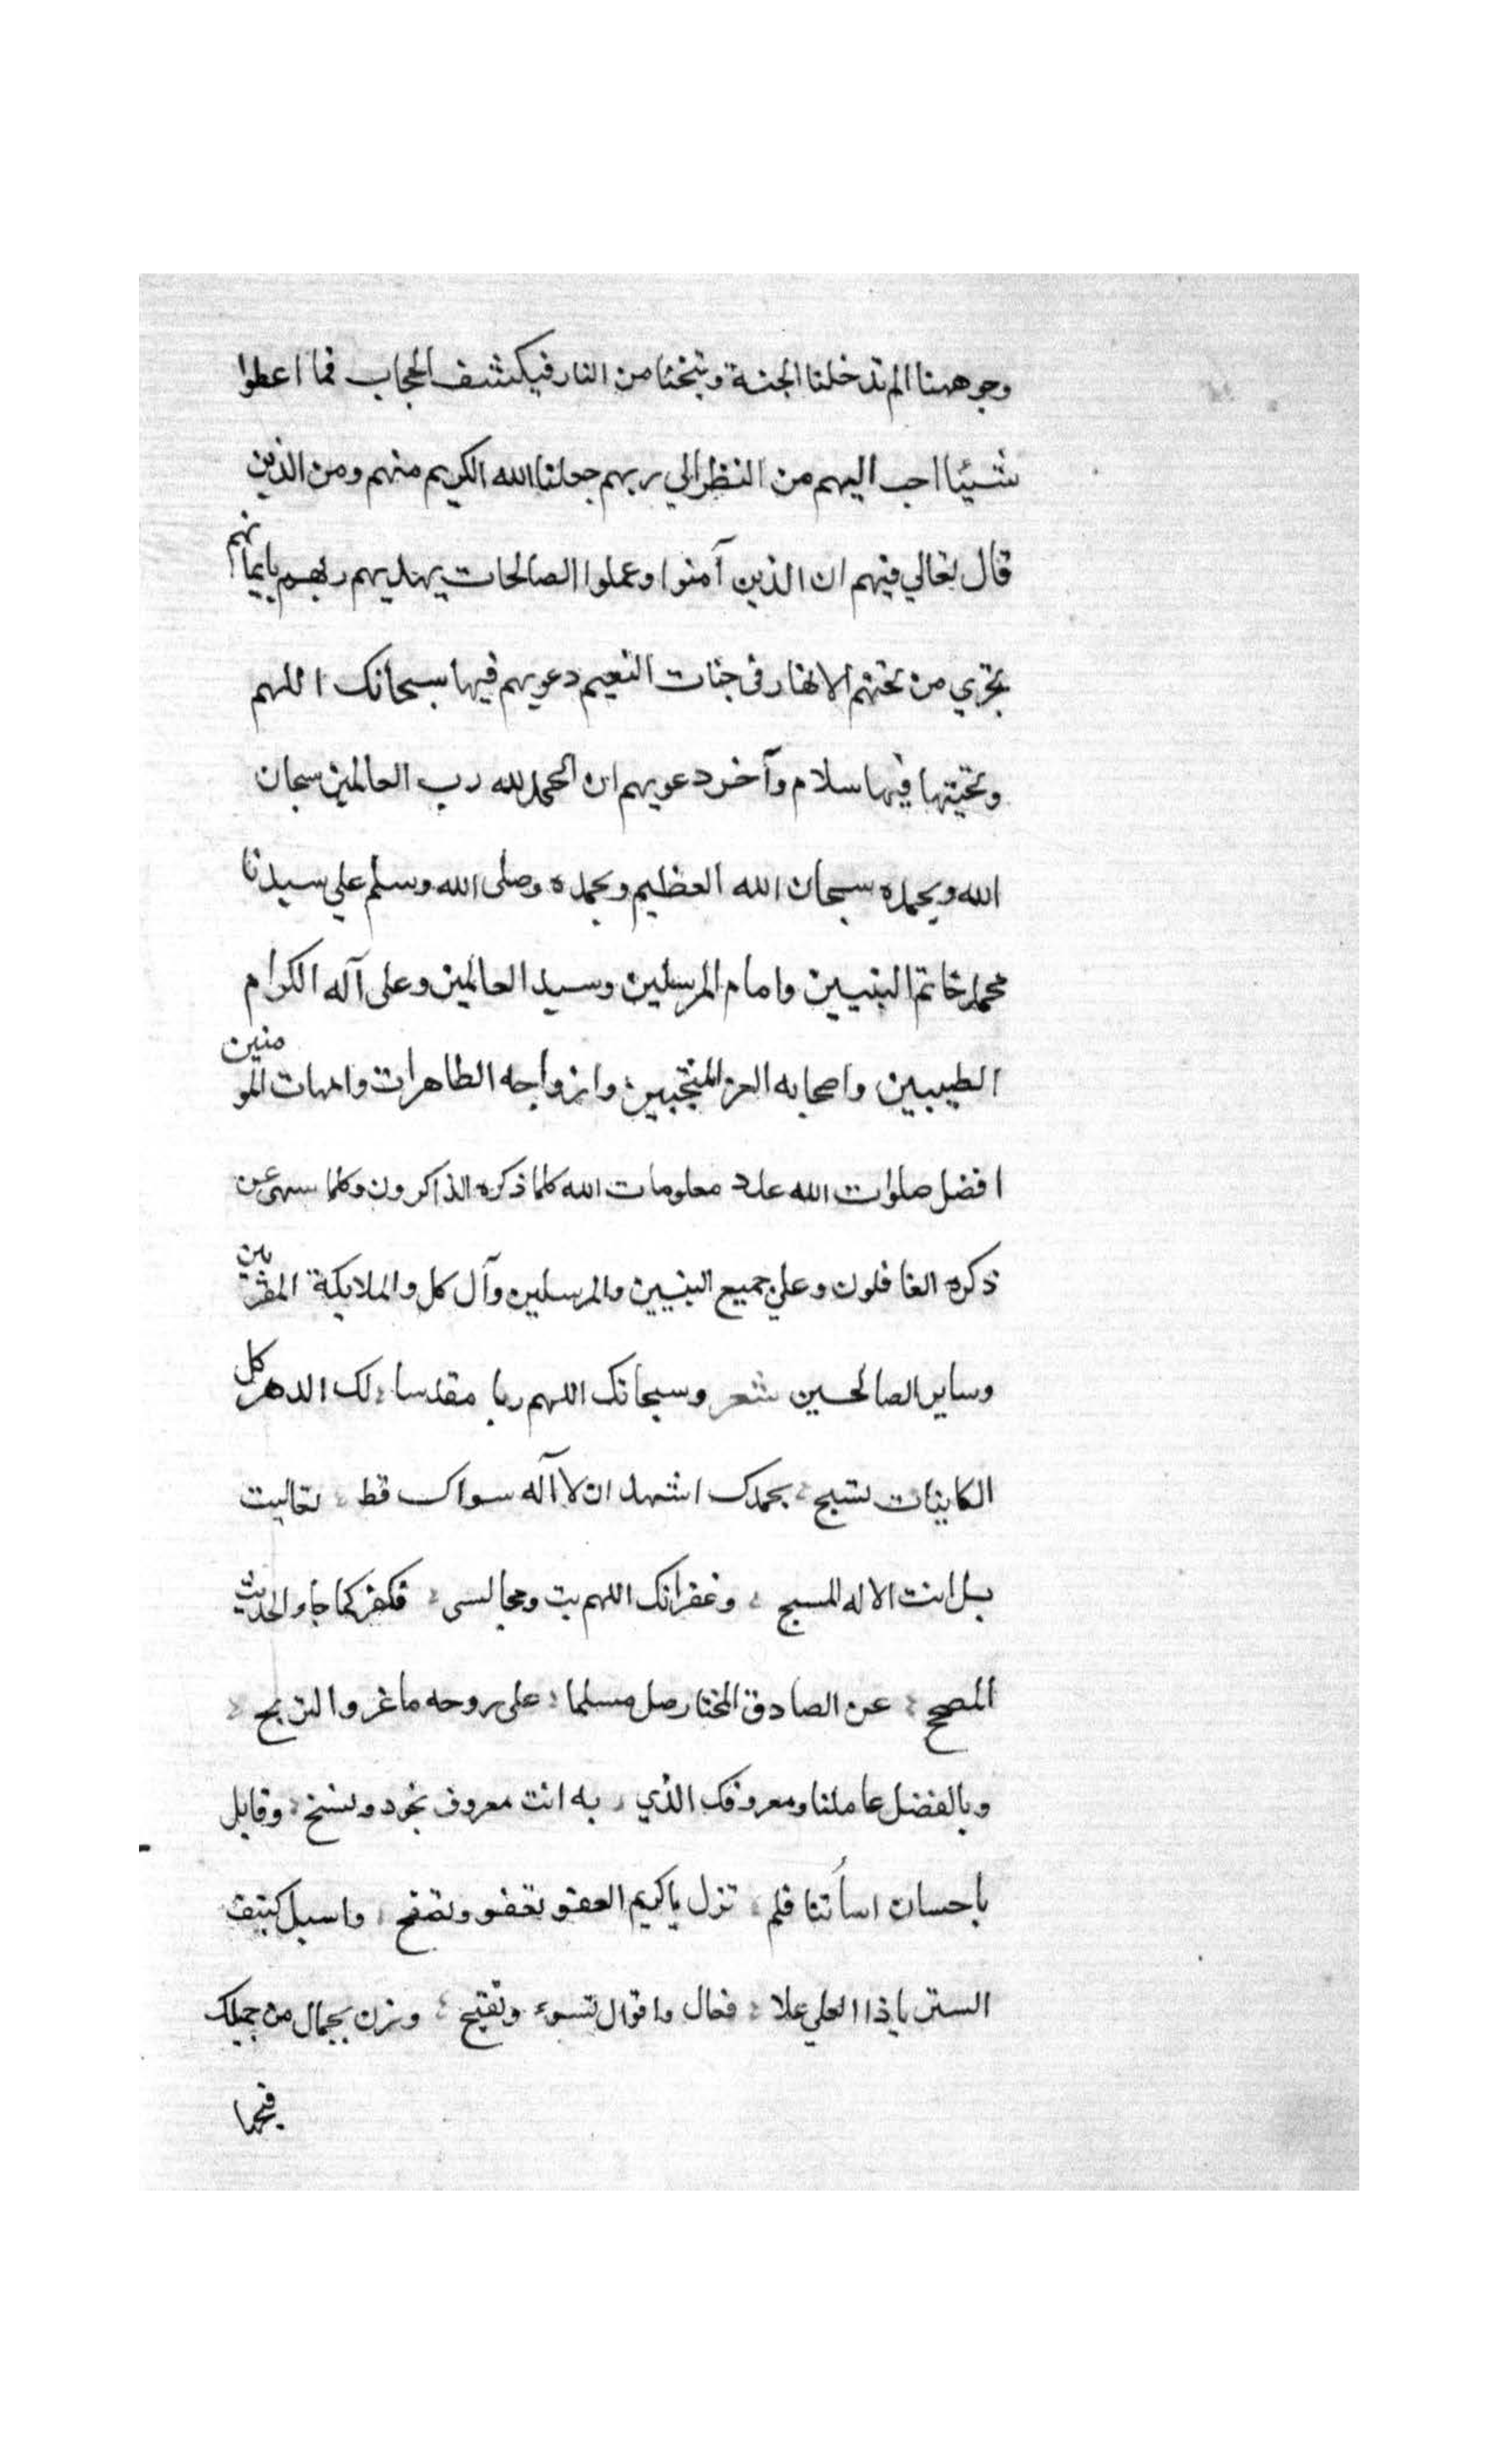 وجوهنا الم تدخلنا الجنة وتنجنا من النار فيكشف الحجاب فما اعطوا
شيئا احب اليهم من النظر الي ربهم جعلنا الله الكريم منهم ومن الذين
قال تعالي فيهم ان الذين آمنوا وعملوا الصالحات يهديهم ربهم بايمانهم
تجري من تحتهم الانهار في جنات النعيم دعويهم فيها سبحانك اللهم
وتحيتها فيها سلام وآخر دعويهم ان الحمد لله رب العالمين سبحان
الله وبحمده سبحان الله العظيم وبحمده وصلى الله وسلم علي سيدنا
محمد خاتم النبيين وامام المرسلين وسيد العالمين وعلى آله الكرام
الطيبين واصحابه الغر المنتجبين وازواجه الطاهرات وامهات المومنين
افضل صلوات الله عدد معلومات الله كلما ذكره الذاكرون وكلما سهى عن
ذكره الغافلون وعلي جميع النبيين والمرسلين وآل كل والملايكة المقربين
وساير الصالحين شعر وسبحانك اللهم ربا مقدسا لك الدهر كل
الكاينات تسبح بحمدك اشهد ان لا آله سواك قط تعاليت
بل انت الاله المسبح وغفرانك اللهم تبت ومجالسي فكفر كما جاء الحديث
المصحح عن الصادق المختار صل مسلما على روحه ما غر والتربح
وبالفضل عاملنا ومعروفك الذي به انت معروف تجود وتسنح وقابل
باحسان اسأتنا فلم تزل يا كريم العفو تعفو وتصفح واسبل كثيف
الستر يا ذا العلي علا فعال واقوال تسوء وتقبح وزن بجمال من جميلك